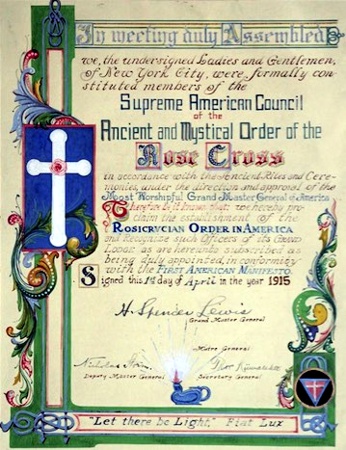 In meeting duly Assembled
we, the undersigned Ladies and Gentlemen,
of New York City, were formally con-
stituted members of the
Supreme American Council
of the
Ancient and Mystical Order of the
Rose Cross
in accordance with the Ancient Rites and Cere-
monies, under the direction and approval of the
Moost Worshipful Grand Master General of America
Therefore be it known that we hereby pro-
claim the establishment of the
ROSICRVCIAN ORDER IN AMERICA
and Recognize such Officers of its Grand
Lodge as are hereto subscribed as
being duly appointed, in conformity
with the FIRST AMERICAN MANIFESTO.
Signed this 1st day of April in the year 1915
H. Spencer Lewis
Grand Master General
Matre General
Nicholas
Thor Kiimalehto
Deputy Master General Secretary General
"Let there be Light," Fiat Lux